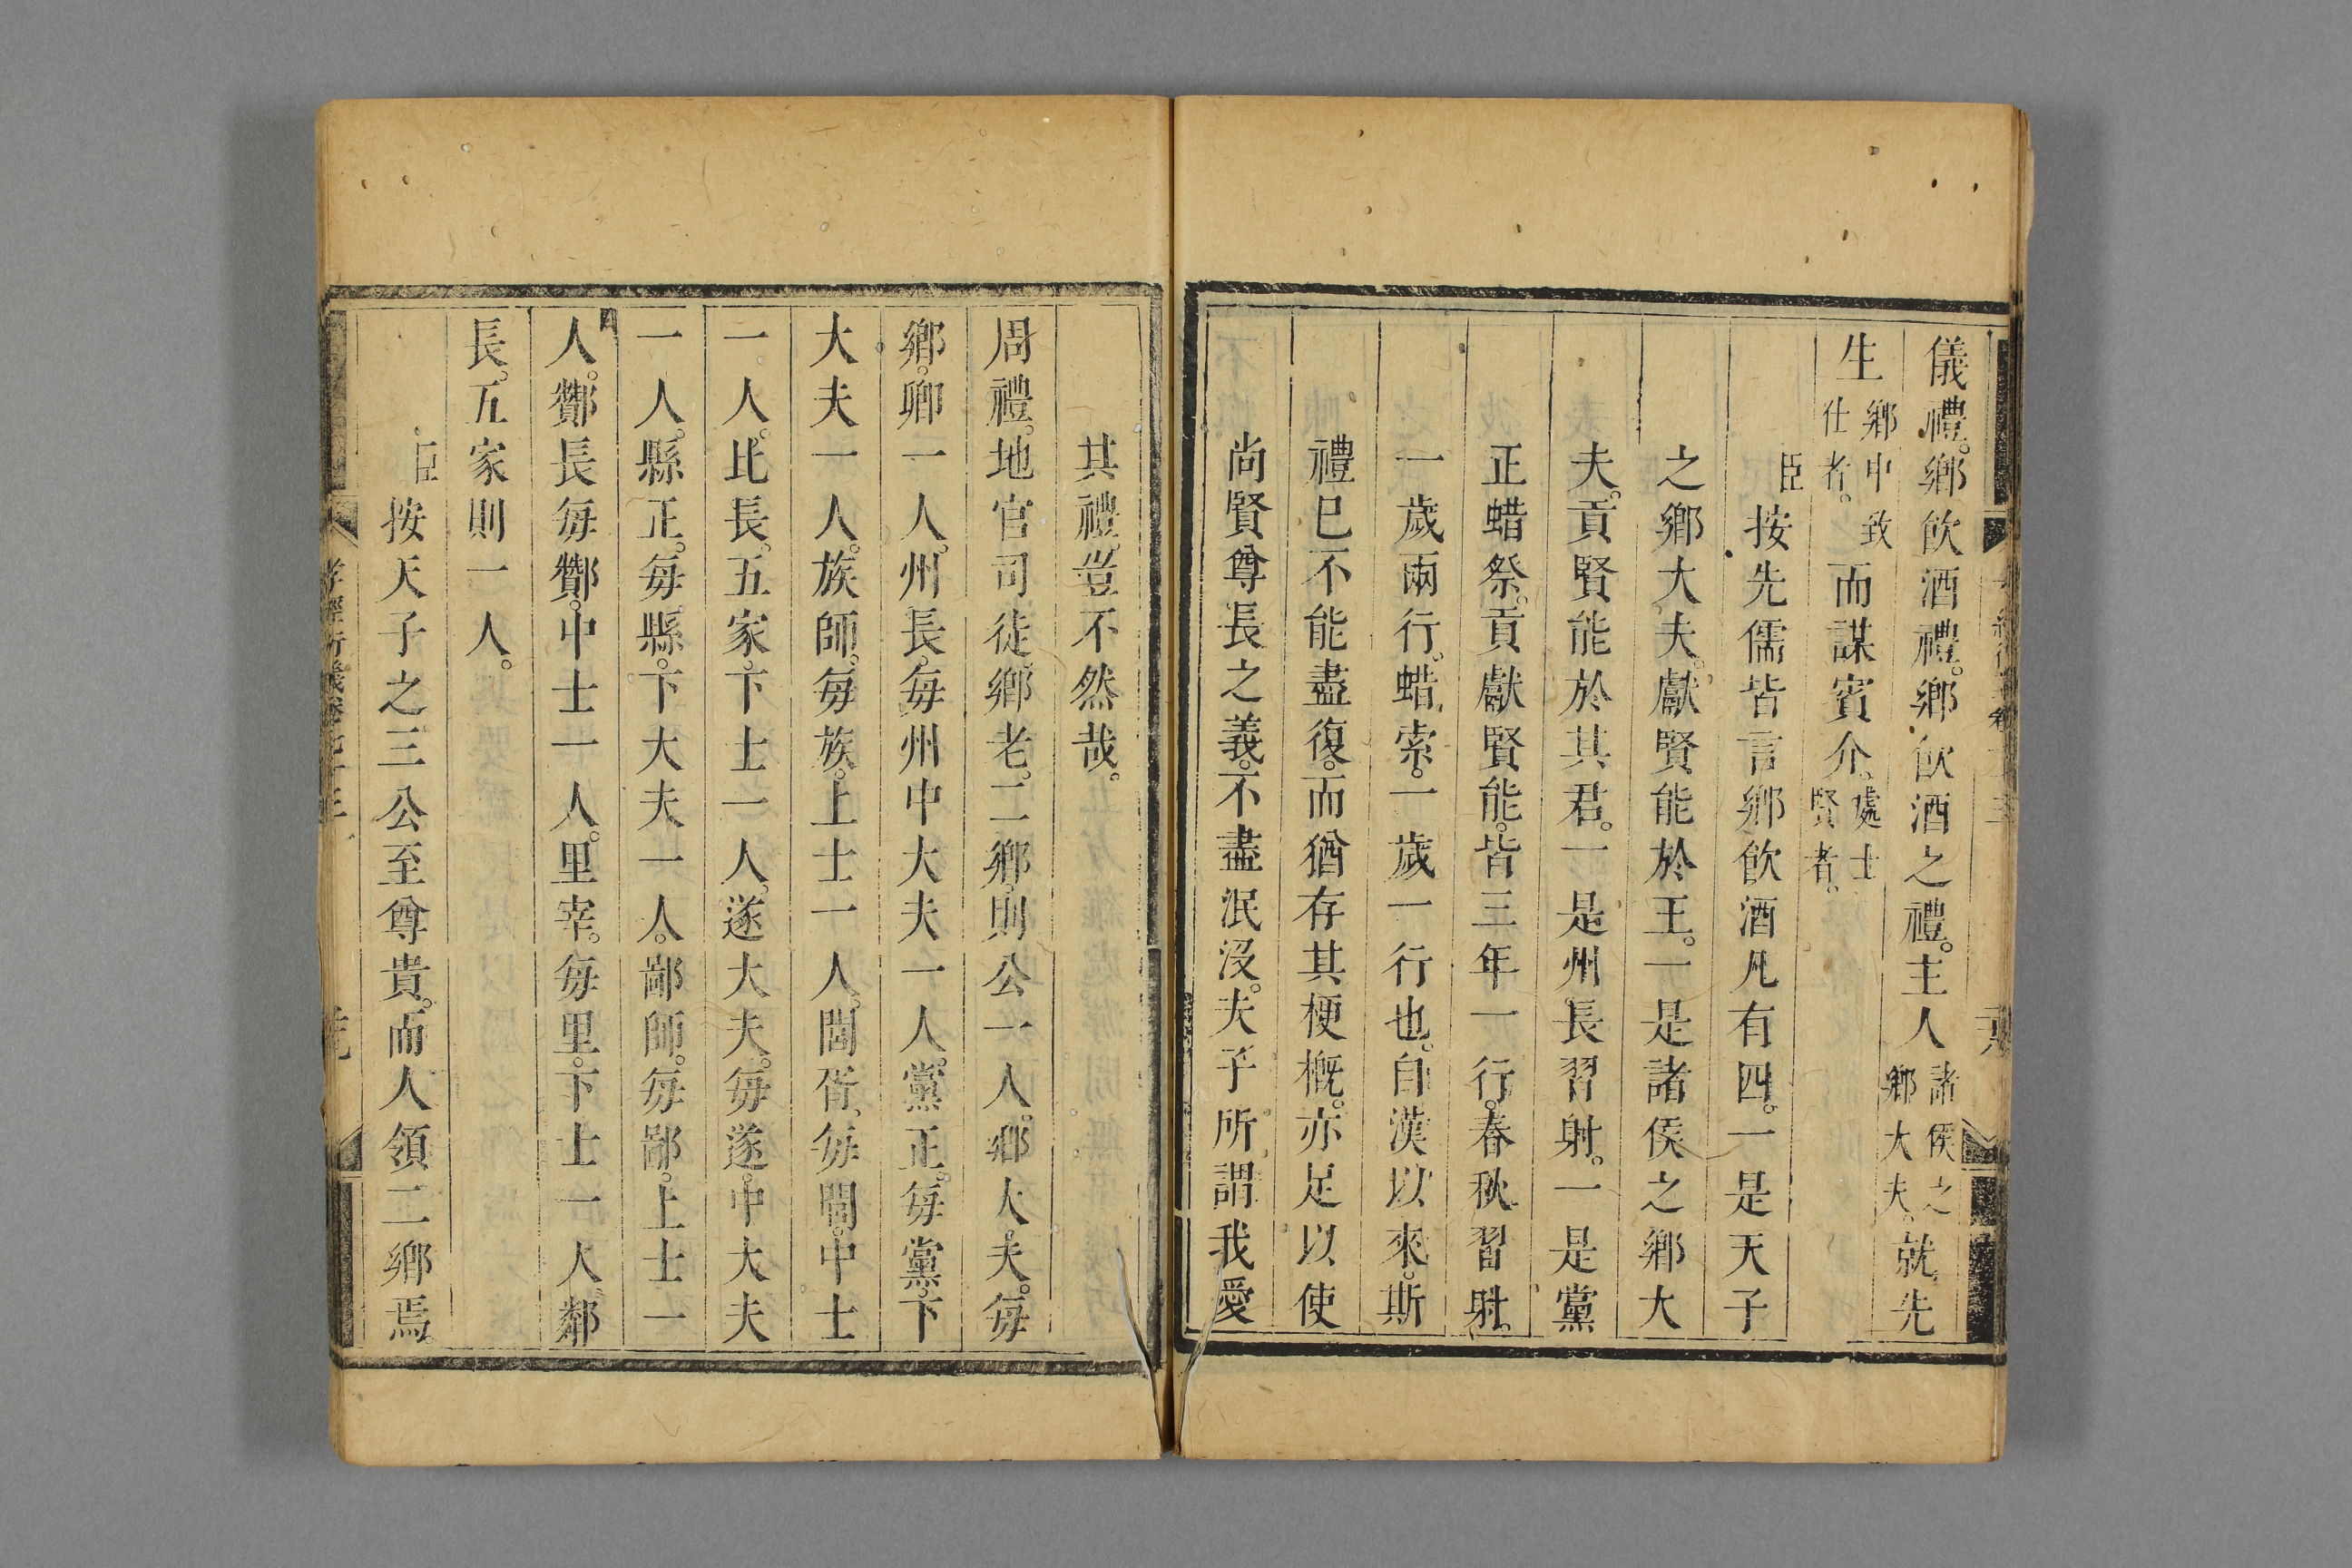 儀禮。鄉飲酒禮。鄉飲酒之禮。主人諸侯之鄉大夫。就先
生鄉中致仕者。而謀賓介。處士賢者。
臣按先儒皆言鄉飲酒凡有四。一是天子
之鄉大夫。獻賢能於王。一是諸侯之鄉大
夫。貢賢能於其君。一是州長習射。一是黨
正蜡祭。貢獻賢能。皆三年一行。春秋習射。
一歲兩行。蜡索。一歲一行也。自漢以來。斯
禮已不能盡復。而猶存其梗概。亦足以使
尚賢尊長之義。不盡泯沒。夫子所謂我愛
其禮。豈不然哉。
周禮。地官司徒。鄉老。二鄉。則公一人。鄉大夫。每
鄉。卿一人。州長。每州中大夫一人。黨正。每黨。下
大夫一人。族師。每族。上士一人。閭胥。每閭。中士
一人。比長。五家。下士一人。遂大夫。每遂。中大夫
一人。縣正。每縣。下大夫一人。鄙師。每鄙。上士一
人。酇長每酇。中士一人。里宰。每里。下士一人鄰
長。五家則一人。
臣按天子之三公至尊貴。而人領二鄉焉。
孝經衍義卷